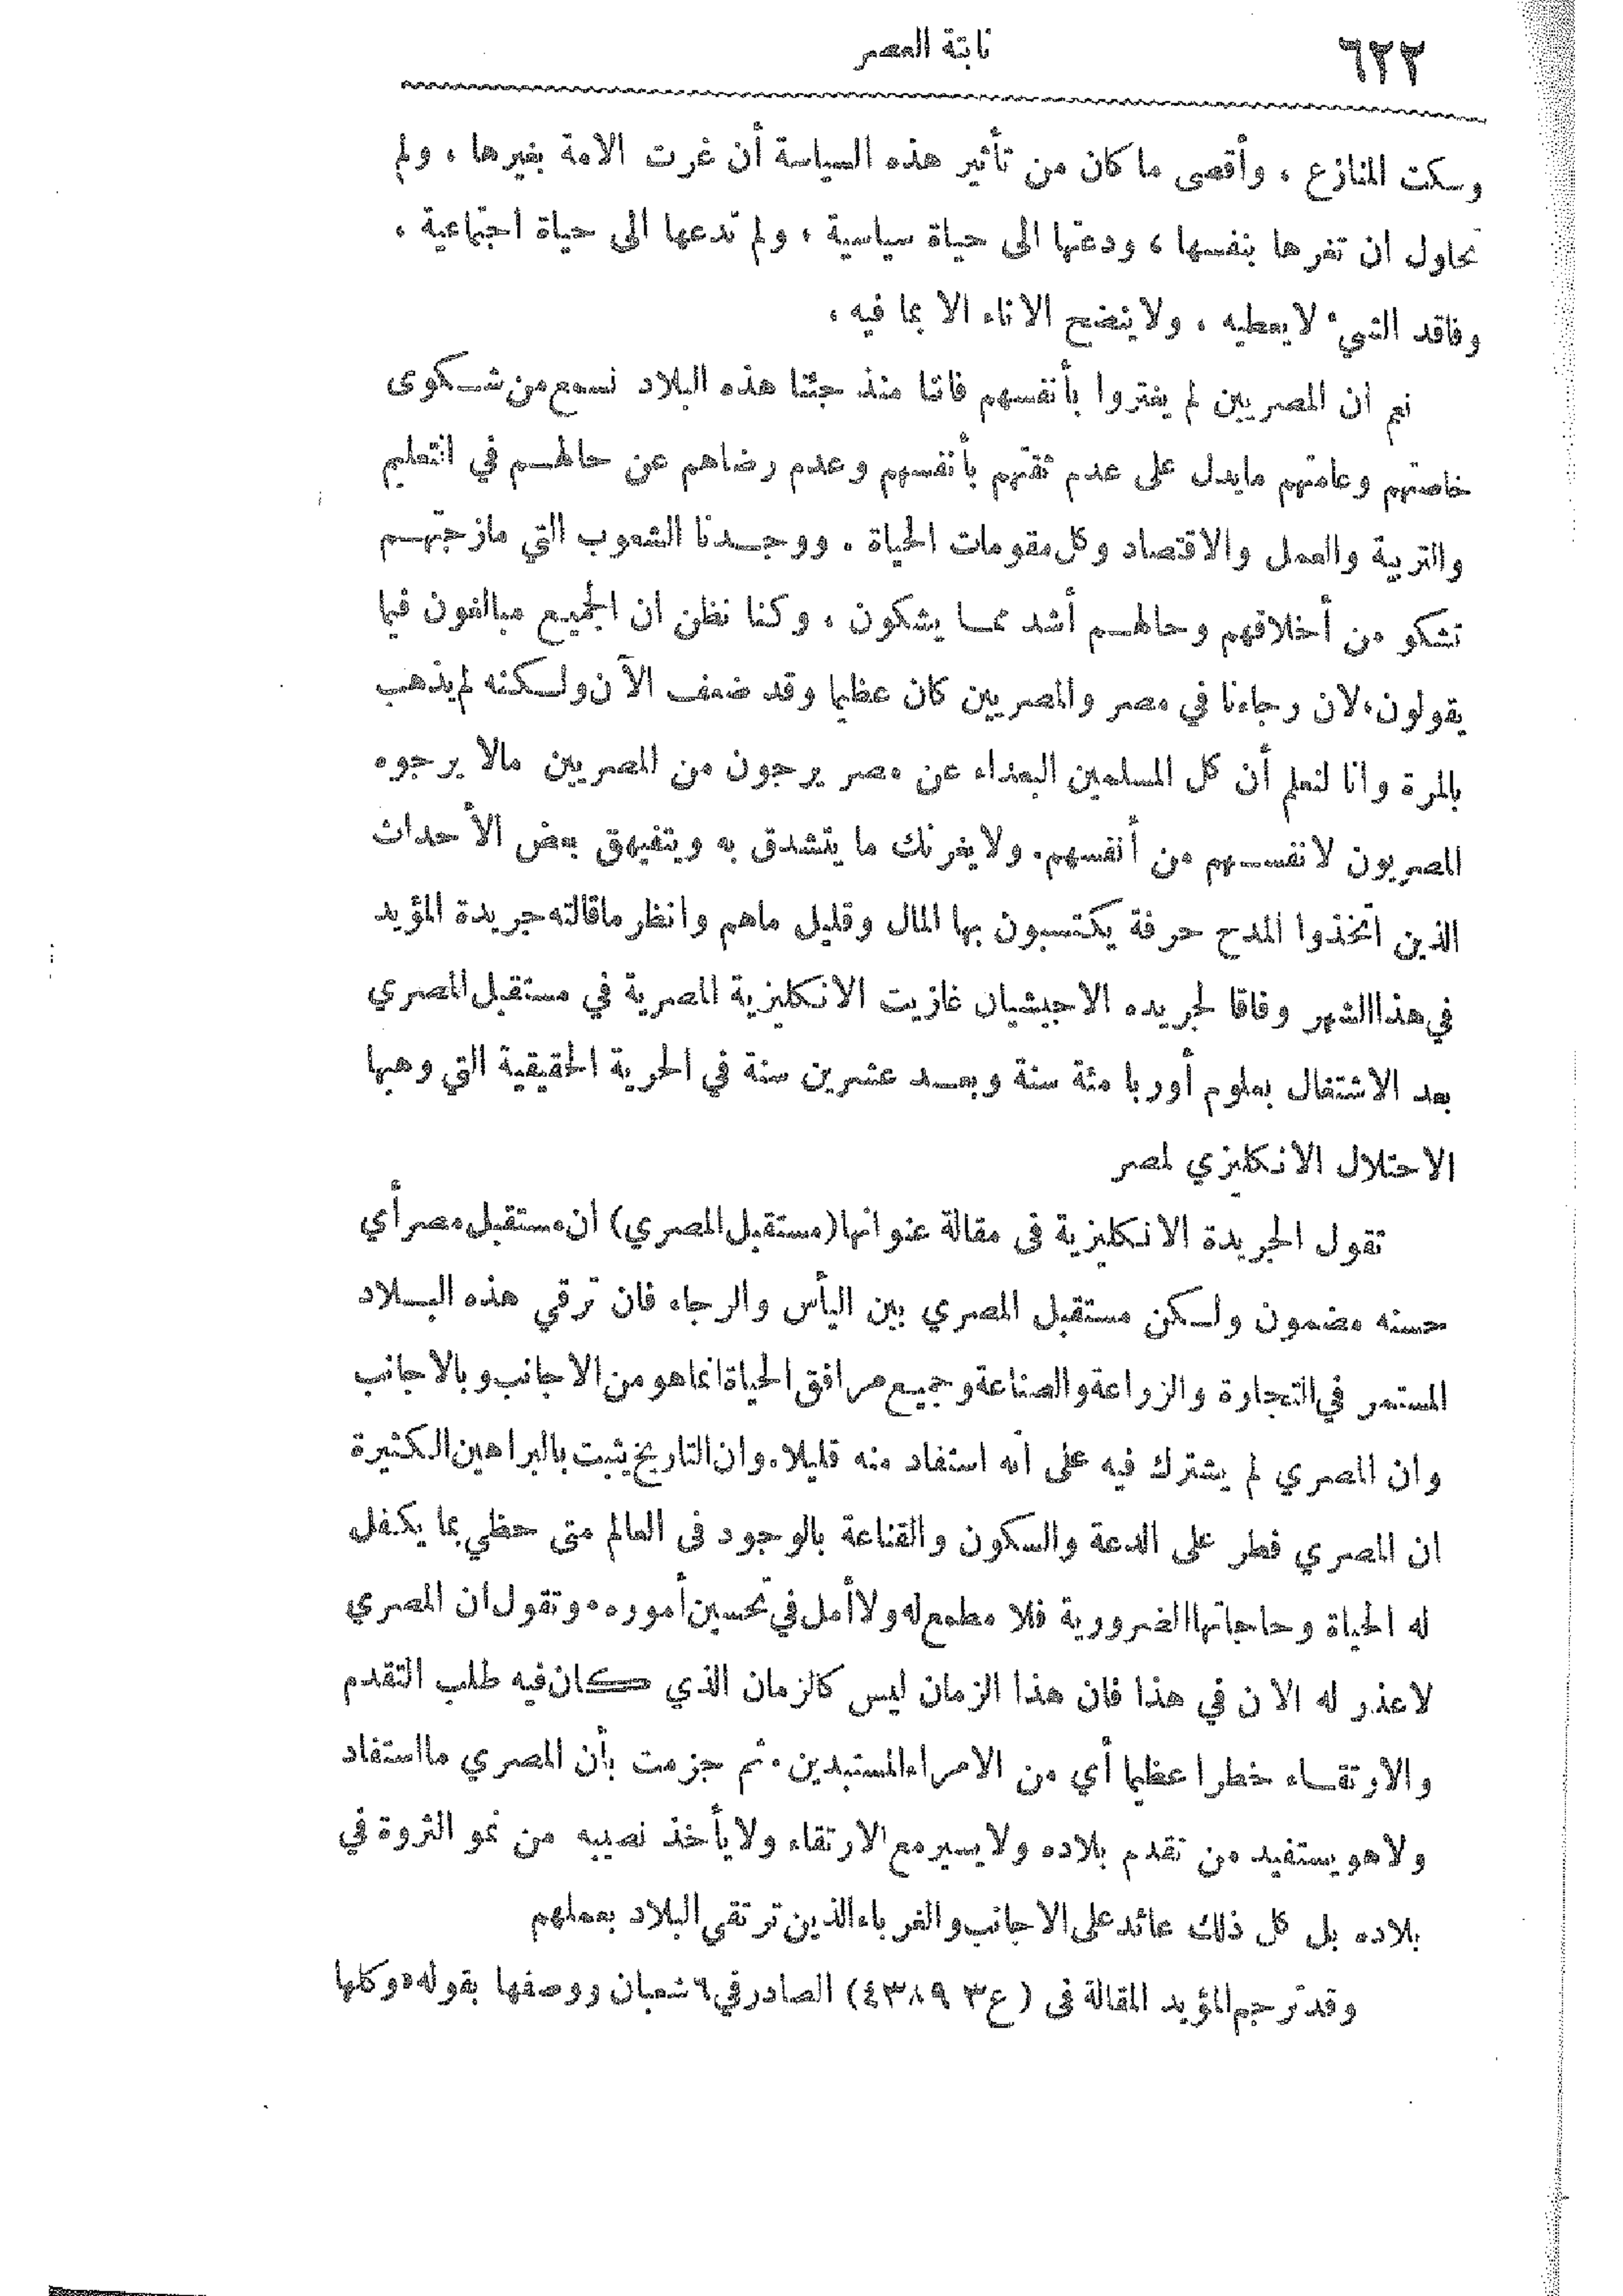 ٦٢٢
نابتة العصر
وسكت المنازع ، وأقصى ما كان من تأثير هذه السياسة أن غرت الامة بغيرها ، ولم
تحاول ان تغرها بنفسها ، ودعتها الى حياة سياسية ، ولم تدعها الى حياة اجتماعية ،
وفاقد الشيء لايعطيه ، ولا ينضح الاناء الا بما فيه ،
نعم ان المصريين لم يغتروا بأنفسهم فاننا منذ جئنا هذه البلاد نسمع من شكوى
خاصتهم وعامتهم مايدل على عدم ثقتهم بأنفسهم وعدم رضاهم عن حالهم في التعليم
والتربية والعمل والاقتصاد وكل مقومات الحياة . ووجدنا الشعوب التي مازجتهم
تشكو من أخلاقهم وحالهم أشد مما يشكون ، وكنا نظن ان الجميع مبالغون فيما
يقولون، لان رجاءنا في مصر والمصريين كان عظيما وقد ضعف الآن ولكنه لم يذهب
بالمرة وانا لنعلم أن كل المسلمين البعداء عن مصر يرجون من المصريين مالا يرجوه
المصريون لانفسهم من أنفسهم. ولايغرنك ما يتشدق به ويتفيهق بعض الأحداث
الذين اتخذوا المدح حرفة يكتسبون بها المال وقليل ماهم وانظر ماقالته جريدة المؤيد
في هذا الشهر وفاقا لجريده الاجيشيان غازيت الانكليزية المصرية في مستقبل المصري
بعد الاشتغال بعلوم أوربا مئة سنة وبعد عشرين سنة في الحرية الحقيقية التي وهبها
الاحتلال الانكليزي لمصر
تقول الجريدة الانكليزية فى مقالة عنوانها (مستقبل المصري) ان مستقبل مصر أي
حسنه مضمون ولكن مستقبل المصري بين اليأس والرجاء فان ترقي هذه البلاد
المستمر في التجارة والزراعة والصناعة وجميع مرافق الحياة انما هو من الاجانب وبالاجانب
وان المصري لم يشترك فيه على انه استفاد منه قليلا. وان التاريخ يثبت بالبراهين الكثيرة
ان المصري فطر على الدعة والسكون والقناعة بالوجود فى العالم متى حظي بما يكفل
له الحياة وحاجاتها الضرورية فلا مطمع له ولا أمل في تحسين أموره. وتقول ان المصري
لاعذر له الان في هذا فان هذا الزمان ليس كالزمان الذي كان فيه طلب التقدم
والارتقاء خطرا عظيما أي من الامراء المستبدين. ثم جزمت بأن المصري مااستفاد
ولا هو يستفيد من تقدم بلاده ولا يسير مع الارتقاء ولا يأخذ نصيبه من نمو الثروة في
بلاده بل كل ذلك عائد على الاجانب والغرباء الذين ترتقي البلاد بعملهم
وقد ترجم المؤيد المقالة فى (ع ٤٣٨٩٣) الصادر في ٦ شعبان ووصفها بقوله «وكلها